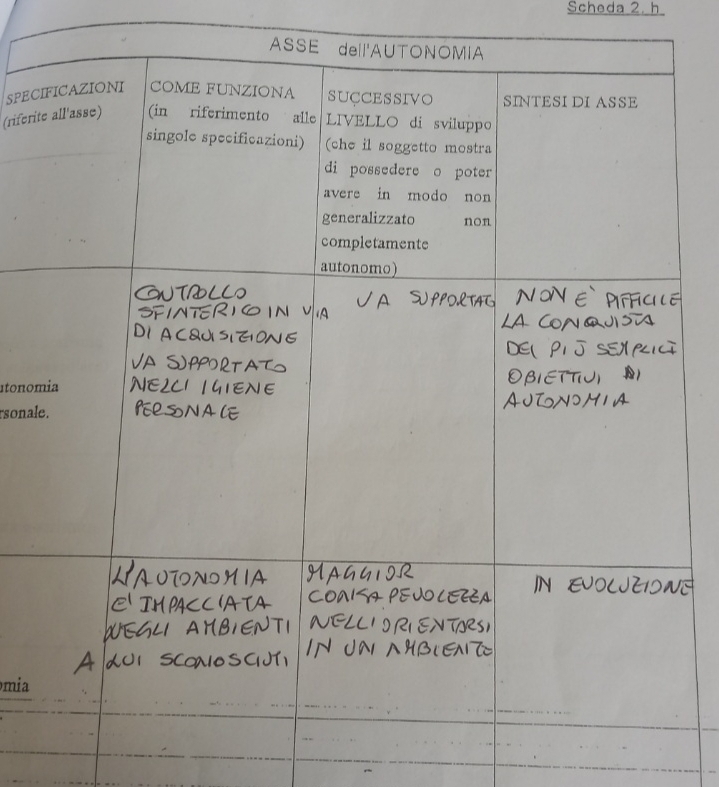 Scheda 2. h.
ASSE dell'AUTONOMIA
SPECIFICAZIONI
(riferite all'asse)
COME FUNZIONA
(in riferimento alle
singole specificazioni)
SUCCESSIVO
LIVELLO di sviluppo
(che il soggetto mostra
di possedere o poter
avere in modo non
generalizzato non
completamente
autonomo)
SINTESI DI ASSE
utonomia
rsonale.
CONTROLLO
SFINTERICO IN VIA
DI ACQUISIZIONE
VA SUPPORTATO
NELL'IGIENE
PERSONALE
VA SUPPORTATO
NON È DIFFICILE
LA CONQUISTA
DEI PIÙ SEMPLICI
OBIETTIVI DI
AUTONOMIA
omia
L'AUTONOMIA
E' IMPACCIATA
NEGLI AMBIENTI
A LUI SCONOSCIUTI
MAGGIOR
CONSAPEVOLEZZA
NELL'ORIENTARSI
IN UN AMBIENTE
IN EVOLUZIONE